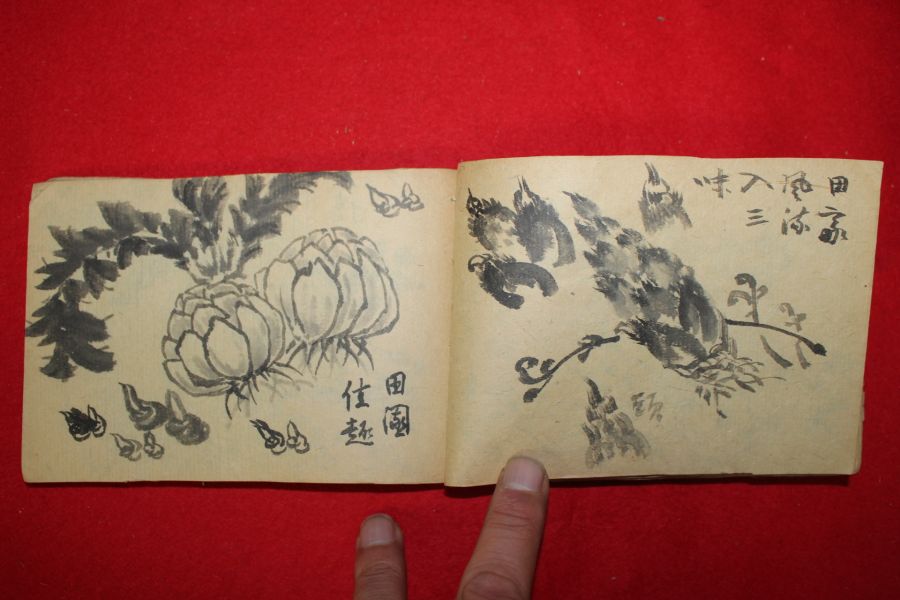 田家
風流
入三
味
田園
佳趣